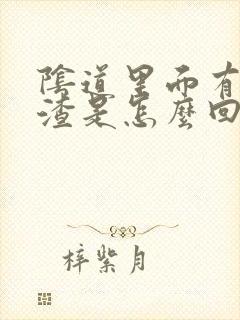 陰道里面有
渣是怎麼回
梓紫月